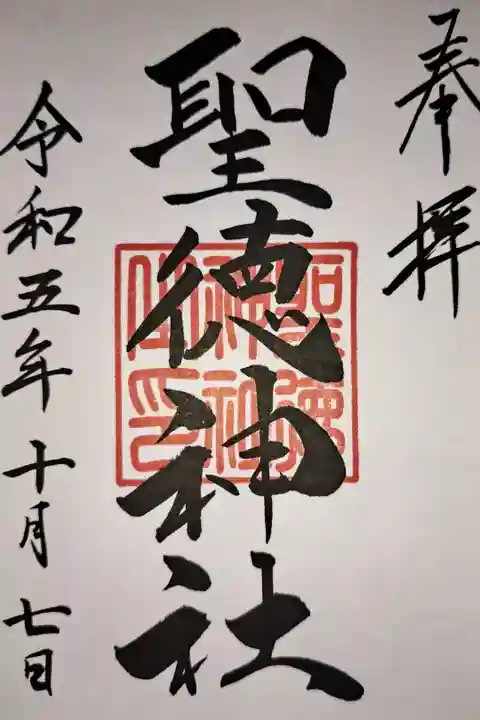 奉拝
聖徳神社
聖徳
神社
令和五年十月七日